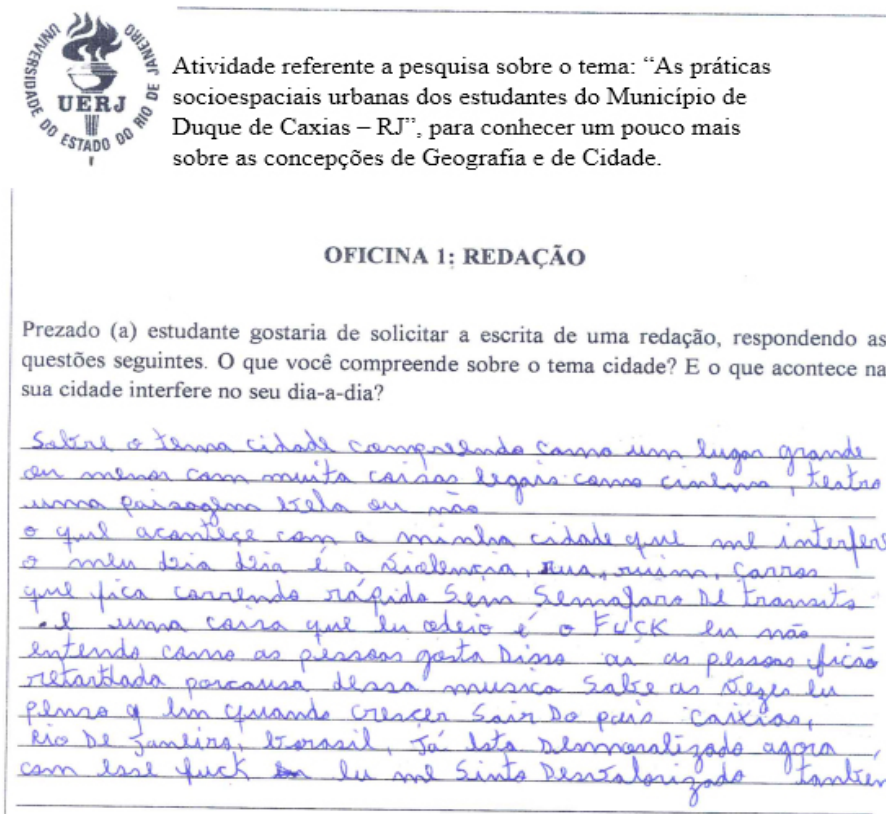 UNIVERSIDADE DO ESTADO DO RIO DE JANEIRO
UERJ
Atividade referente a pesquisa sobre o tema: “As práticas
socioespaciais urbanas dos estudantes do Município de
Duque de Caxias – RJ”, para conhecer um pouco mais
sobre as concepções de Geografia e de Cidade.
OFICINA 1: REDAÇÃO
Prezado (a) estudante gostaria de solicitar a escrita de uma redação, respondendo as
questões seguintes. O que você compreende sobre o tema cidade? E o que acontece na
sua cidade interfere no seu dia-a-dia?
Sobre o tema cidade compreendo como um lugar grande
ou menor com muita coisas legais como cinema, teatro
uma paisagem bela ou não
o que aconteçe com a minha cidade que me interfere
o meu dia dia é a violencia, rua, ruim, carros
que fica correndo rápido sem semafaro De transito
. e uma coisa que eu odeio é o FUCK eu não
entendo como as pessoas gosta Disso ou as pessoas ficão
retartdada porcausa dessa musica Sabe as vezes eu
penso q em quando crescer Sair Do pais caixias,
Rio De Janeiro, brasil, Já esta Desmoralizado agora
com esse fuck eu me Sinto Desvalorizado também